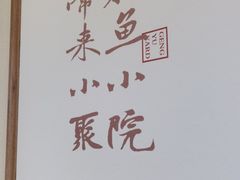 鱼小院
来小聚
GENG
YU
YARD